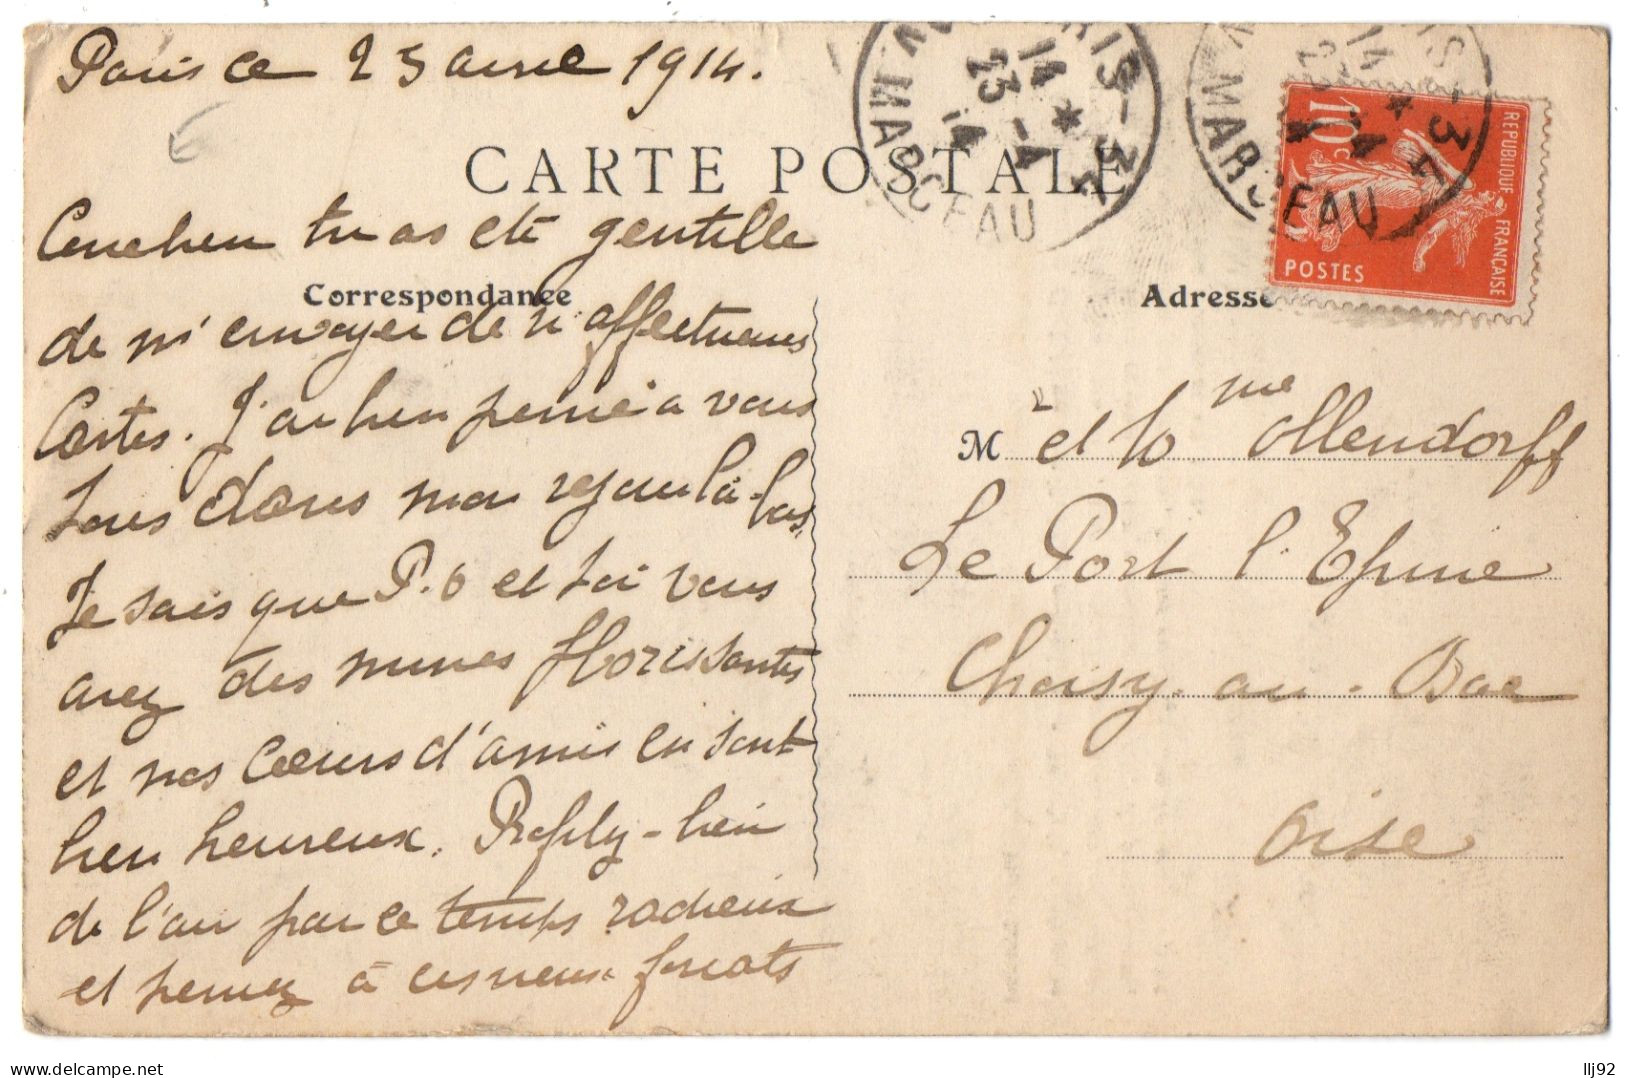 Paris ce 23 avril 1914.
CARTE POSTALE
Combien tu as été gentille
Correspondance
de m'envoyer de si affectueuses
Cartes. J'ai bien pensé à vous
tous dans mon séjour là-bas,
Je sais que P.O et toi vous
avez des mines florissantes
et nos Cœurs d'amis en sont
bien heureux. Profly-bien
de l'air par ce temps radieux
et pensez à ces vieux forçats
Adresse
M r et Mme Ollendorff
Le Port l'Epine
Choisy-au-Bac
Oise
PARIS-34
14 *
23 -4
14
AV MARCEAU
10 c
REPUBLIQUE FRANÇAISE
POSTES
PARIS-34
14 *
23 -4
AV MARCEAU
llj92